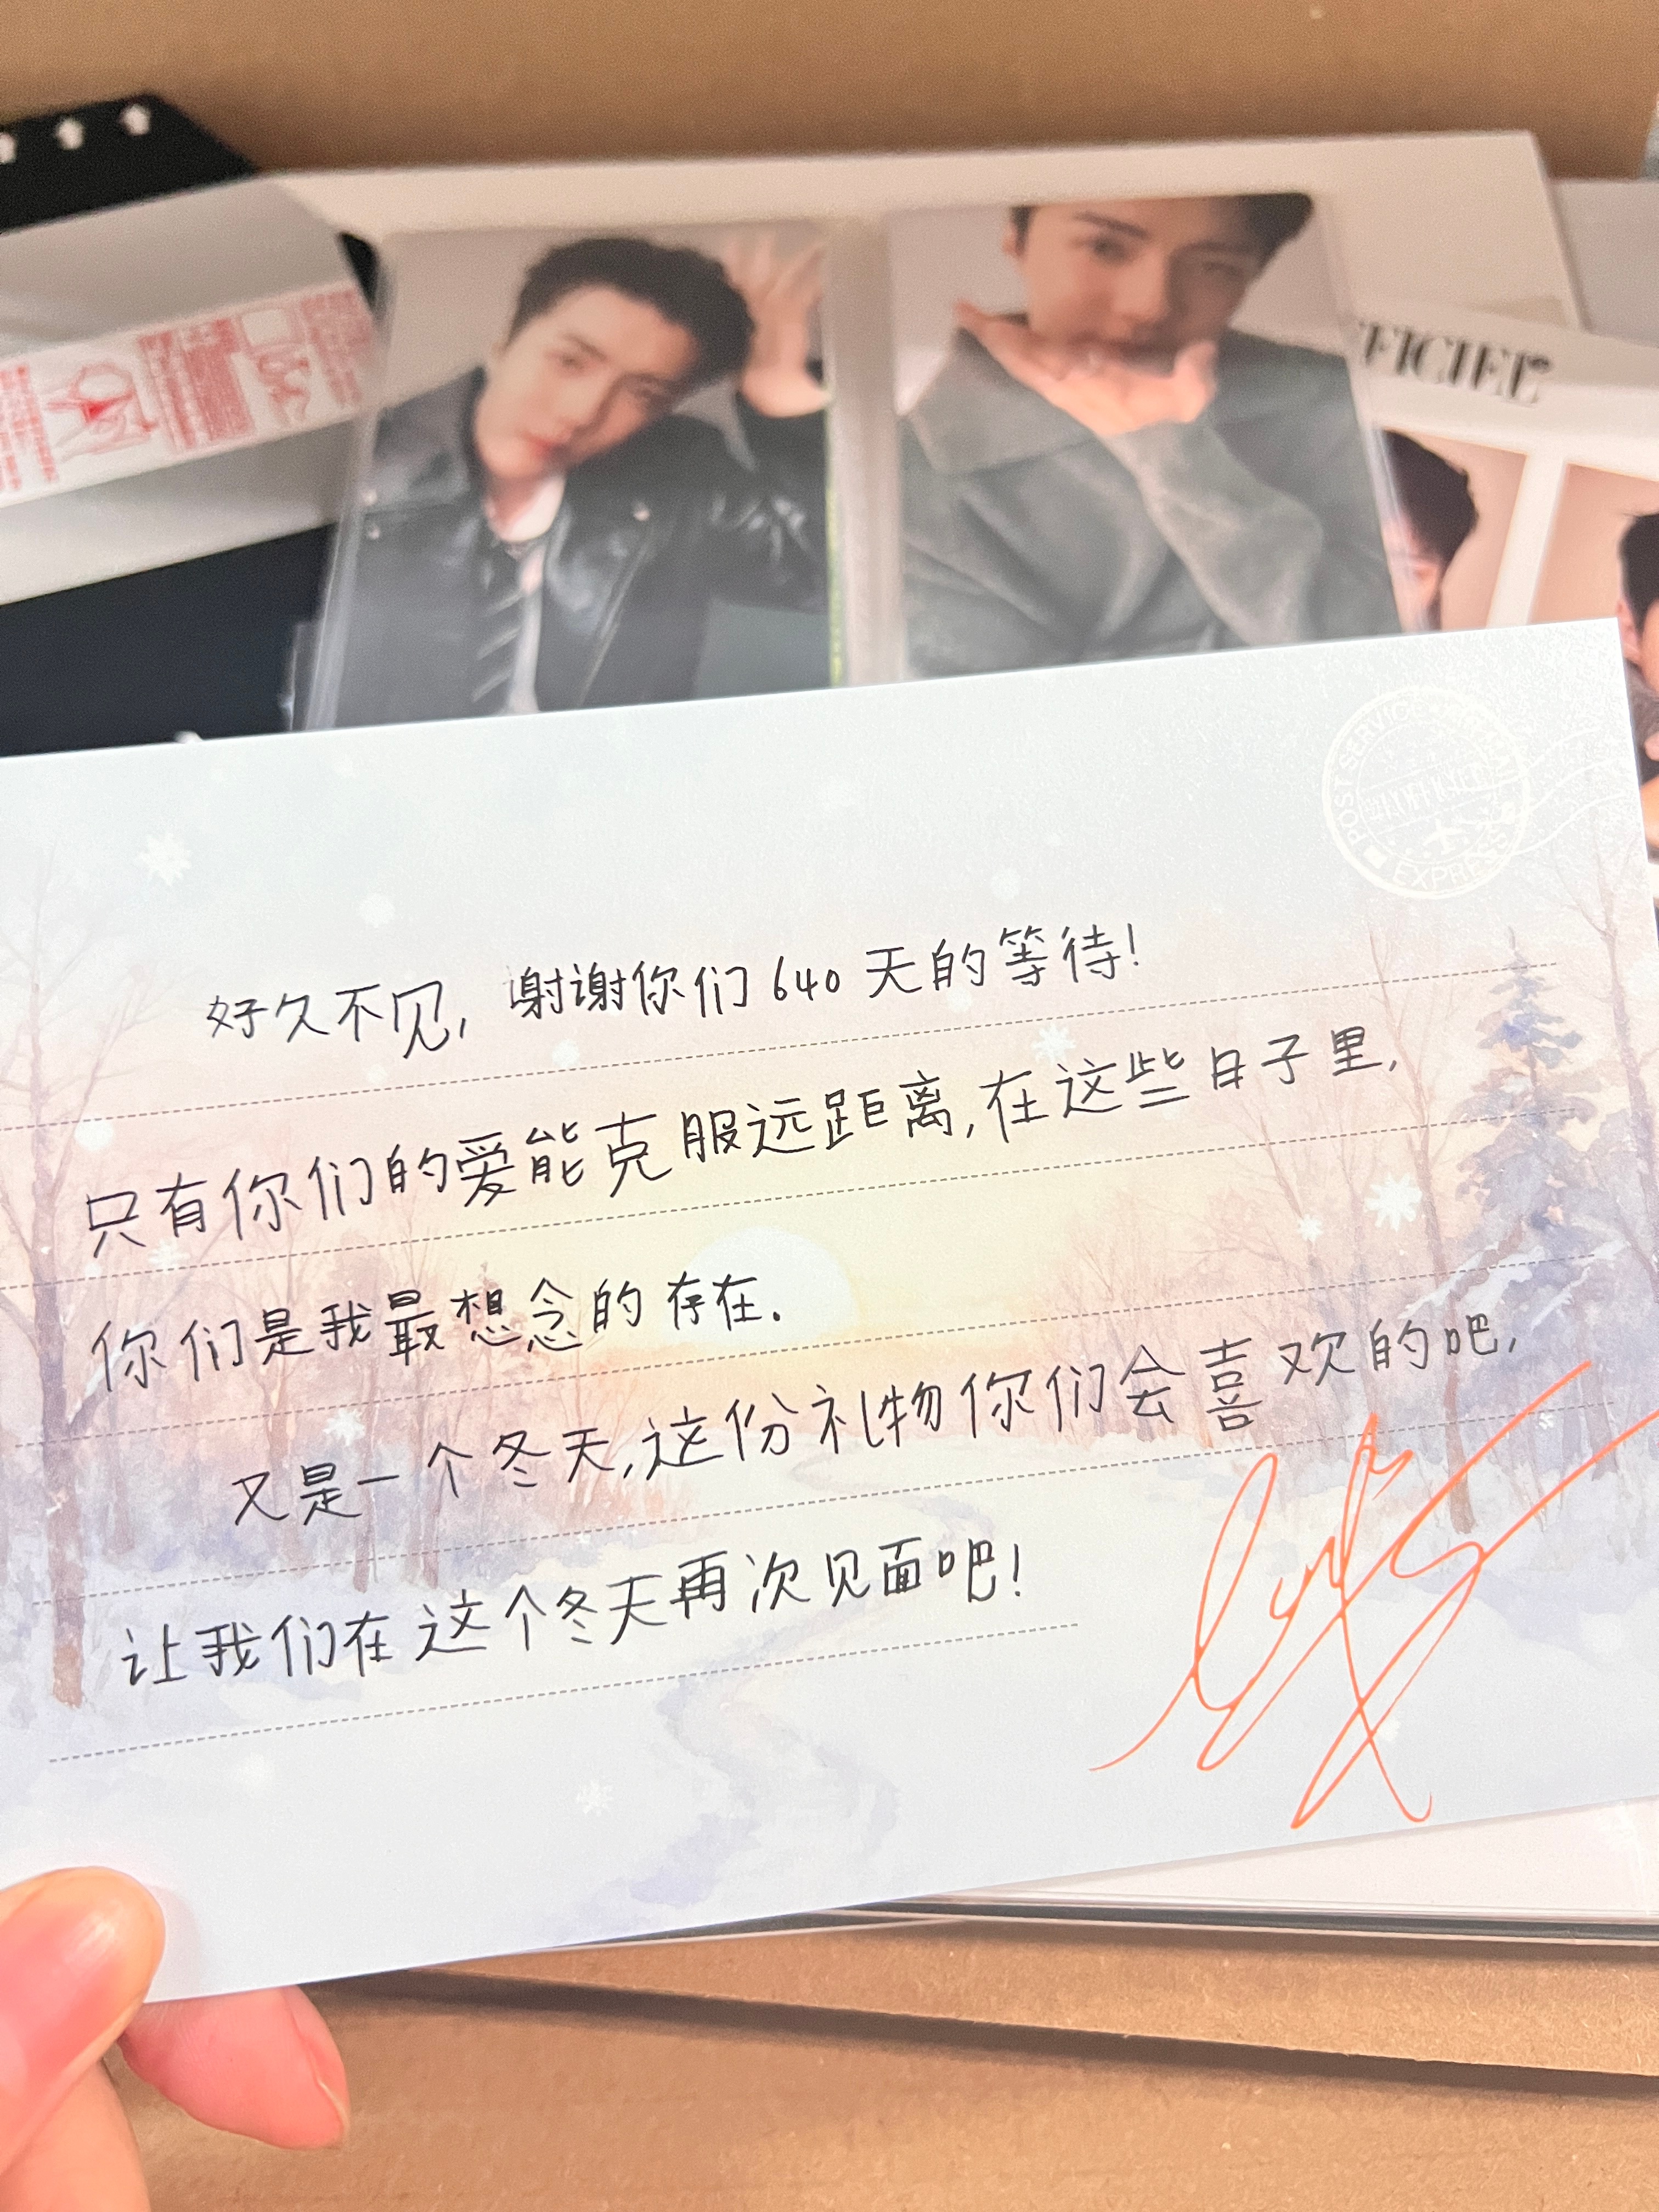 FICIEL
POST SERVICE
EXPRESS
好久不见,谢谢你们640天的等待!
只有你们的爱能克服远距离,在这些日子里,
你们是我最想念的存在.
又是一个冬天,这份礼物你们会喜欢的吧,
让我们在这个冬天再次见面吧!